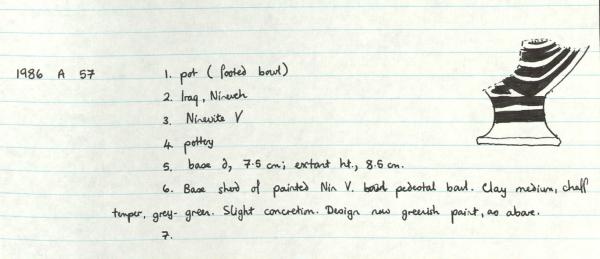 1986 A 57 1. pot (footed bowl)
2. Iraq, Nineveh
3. Ninevite V
4. pottery
5. base d, 7.5 cm; extant ht., 8.5 cm.
6. Base sherd of painted Nin V. pedestal bowl. Clay medium, chaff
temper, grey-green. Slight concretion. Design now greenish paint, as above.
7.